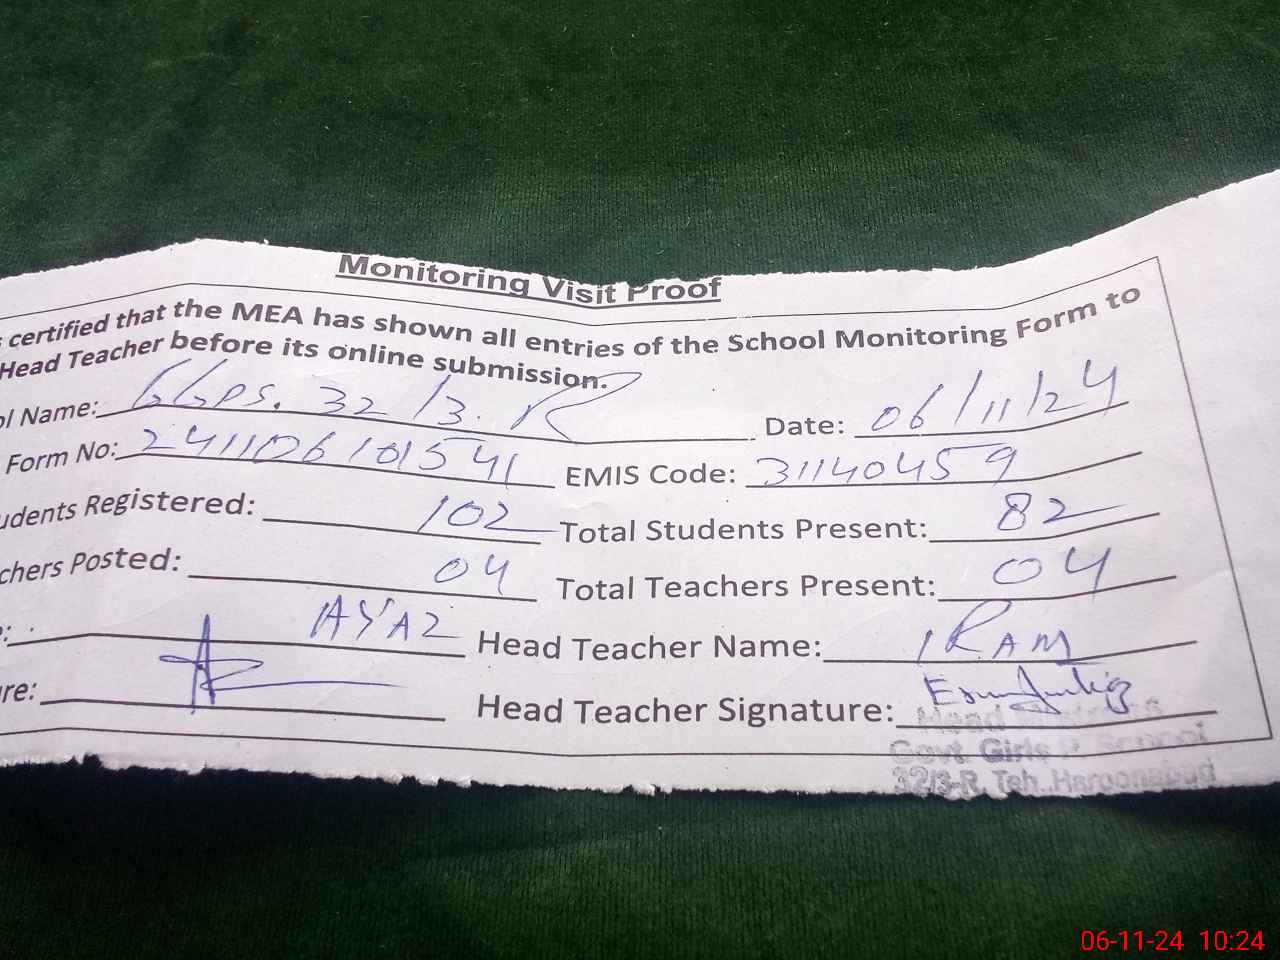 Monitoring Visit Proof
certified that the MEA has shown all entries of the School Monitoring Form to
Head Teacher before its online submission.
ol Name: GGPS. 32/3.R Date: 06/11/24
Form No: 241106101541 EMIS Code: 31140459
udents Registered: 102 Total Students Present: 82
chers Posted: 04 Total Teachers Present: 04
e: AYAZ Head Teacher Name: IRAM
re: Head Teacher Signature:
Head Mistress
Govt. Girls P. School
32/3-R, Teh. Haroonabad
06-11-24 10:24